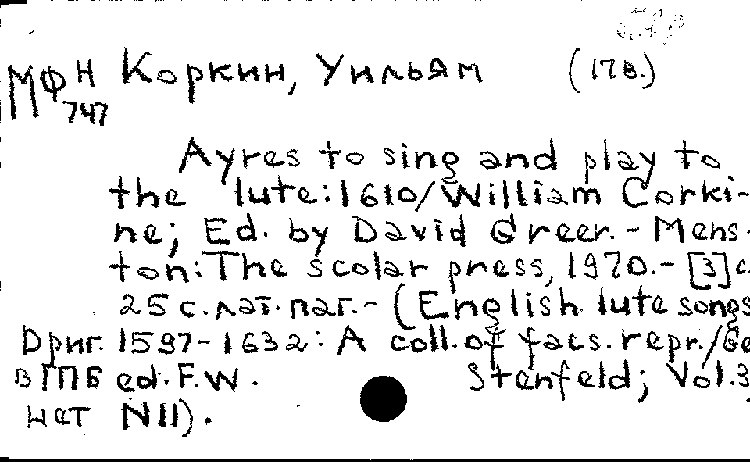 МФН Коркин, Уильям (17в.)
747
Ayres to sing and play to
the lute: 1610/William Corki-
ne; Ed. by David Greer. - Mens-
ton: The scolar press, 1970. - [3]с.
25 с. лат. паг. - (English lute songs
Ориг. 1597-1632: A coll. of facs. repr./Ge
в ГПБ ed. F.W. Stenfeld; Vol. 3
нет N11).